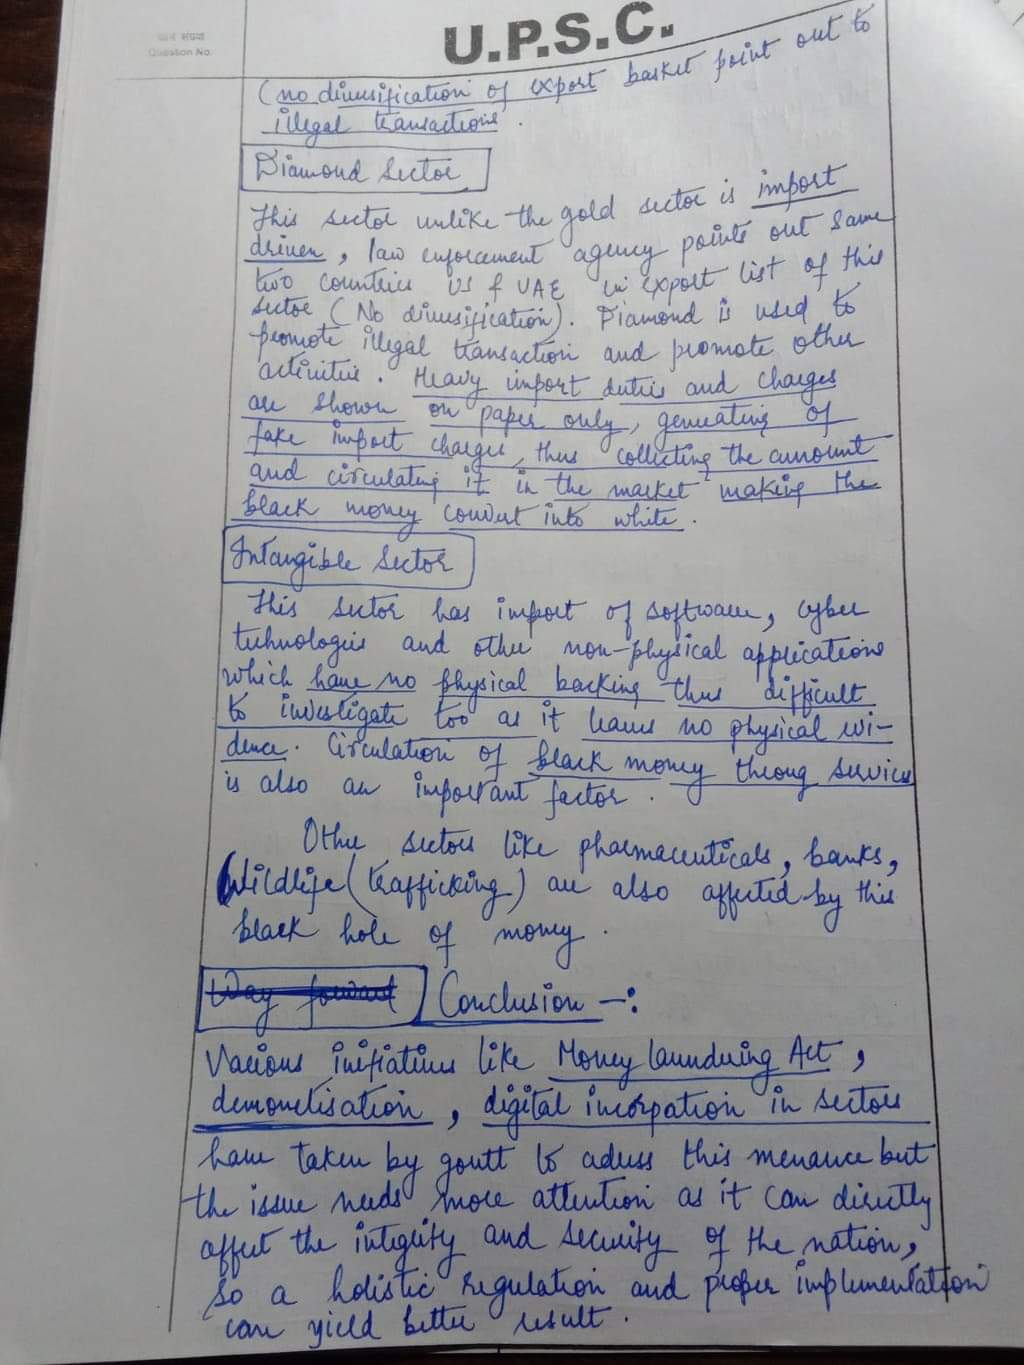 प्रश्न संख्या
Question No.
U.P.S.C.
(no diversification of export basket point out to
illegal transactions.
Diamond Sector
This sector unlike the gold sector is import
driven, law enforcement agency points out same
two countries US & UAE in export list of this
sector (No diversification). Diamond is used to
promote illegal transaction and promote other
activities. Heavy import duties and charges
are shown on paper only, generating of
fake import charges, thus collecting the amount
and circulating it in the market making the
black money convert into white.
Intangible Sector
This sector has import of software, cyber
technologies and other non-physical applications
which have no physical backing thus difficult
to investigate too as it leaves no physical evi-
dence. Circulation of black money throug services
is also an important factor.
Other sectors like pharmaceuticals, banks,
Wildlife (trafficking) are also affected by this
black hole of money.
Way forward Conclusion -:
Various initiatives like Money laundering Act,
demonetisation, digital incorpation in sectors
have taken by govtt to adress this menance but
the issue needs more attention as it can directly
affect the integrity and security of the nation,
so a holistic regulation and proper implementation
can yield better result.